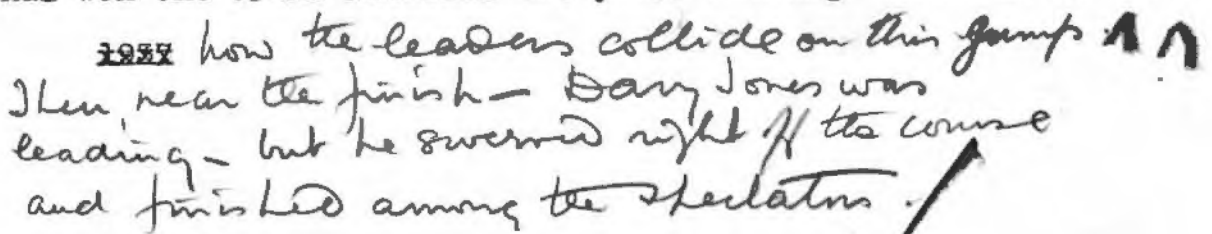 how the leaders collide on this jump.
Then, near the finish — Davy Jones was
leading — but he swerved right off the course
and finished among the spectators.